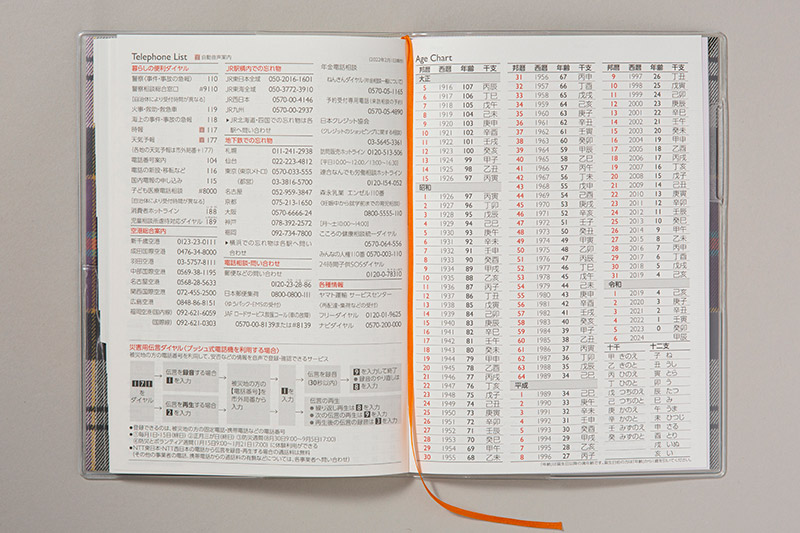 Telephone List 自動音声案内
(2022年2月1日現在)
暮らしの便利ダイヤル
警察(事件・事故の急報) 110
警察相談総合窓口 #9110
(自治体により受付時間が異なる)
火事・救助・救急車 119
海上の事件・事故の急報 118
時報 117
天気予報 177
(各地の天気予報は市外局番+177)
電話番号案内 104
電話の新設・移転など 116
国内電報の申し込み 115
子ども医療電話相談 #8000
(自治体により受付時間が異なる)
消費者ホットライン 188
児童相談所虐待対応ダイヤル 189
空港総合案内
新千歳空港 0123-23-0111
成田国際空港 0476-34-8000
羽田空港 03-5757-8111
中部国際空港 0569-38-1195
名古屋空港 0568-28-5633
関西国際空港 072-455-2500
広島空港 0848-86-8151
福岡空港(国内線) 092-621-6059
(国際線) 092-621-0303
JR駅構内での忘れ物
JR東日本全域 050-2016-1601
JR東海全域 050-3772-3910
JR西日本 0570-00-4146
JR九州 0570-00-2937
▸JR北海道・四国での忘れ物は各
駅へ問い合わせ
地下鉄での忘れ物
札幌 011-241-2938
仙台 022-223-4812
東京(東京メトロ) 0570-033-555
(都営) 03-3816-5700
名古屋 052-959-3847
京都 075-213-1650
大阪 0570-6666-24
神戸 078-392-2572
福岡 092-734-7800
▸横浜での忘れ物は各駅へ問い
合わせ
電話相談・問い合わせ
郵便などの問い合わせ
0120-23-28-86
日本郵便集荷 0800-0800-111
(ゆうパック・EMSの受付)
JAF ロードサービス救援コール(車の故障)
0570-00-8139または#8139
年金電話相談
ねんきんダイヤル(年金相談一般について)
0570-05-1165
予約受付専用電話(来訪相談の予約)
0570-05-4890
日本クレジット協会
(クレジットのショッピングに関する相談)
03-5645-3361
訪問販売ホットライン 0120-513-506
連合なんでも労働相談ホットライン
0120-154-052
森永乳業 エンゼル110番
0800-5555-110
こころの健康相談統一ダイヤル
0570-064-556
みんなの人権110番 0570-003-110
24時間子供SOSダイヤル
0120-0-78310
各種情報
ヤマト運輸 サービスセンター
(再配達・集荷などの受付)
フリーダイヤル 0120-01-9625
ナビダイヤル 0570-200-000
災害用伝言ダイヤル(プッシュ式電話機を利用する場合)
被災地の方の電話番号を利用して、安否などの情報を音声で登録・確認できるサービス
171
を
ダイヤル
伝言を録音する場合
1を入力
伝言を再生する場合
2を入力
被災地の方の
【電話番号】を
市外局番から
入力
1
を
入力
伝言を録音
30秒以内
9を入力して終了
●録音のやり直しは
8を入力
伝言の再生
●繰り返し再生は8を入力
●次の伝言の再生は9を入力
●再生後の伝言の録音は3を入力
●登録できるのは、被災地の方の固定電話・携帯電話などの電話番号
●NTT東日本・NTT西日本の電話から伝言を録音・再生する場合の通話料は無料
(その他の事業者の電話、携帯電話からの通話料の有無などについては、各事業者へ問い合わせ)
Age Chart
邦暦 西暦 年齢 干支
大正
5 1916 107 丙辰
6 1917 106 丁巳
7 1918 105 戊午
8 1919 104 己未
9 1920 103 庚申
10 1921 102 辛酉
11 1922 101 壬戌
12 1923 100 癸亥
13 1924 99 甲子
14 1925 98 乙丑
15 1926 97 丙寅
昭和
1 1926 97 丙寅
2 1927 96 丁卯
3 1928 95 戊辰
4 1929 94 己巳
5 1930 93 庚午
6 1931 92 辛未
7 1932 91 壬申
8 1933 90 癸酉
9 1934 89 甲戌
10 1935 88 乙亥
11 1936 87 丙子
12 1937 86 丁丑
13 1938 85 戊寅
14 1939 84 己卯
15 1940 83 庚辰
16 1941 82 辛巳
17 1942 81 壬午
18 1943 80 癸未
19 1944 79 甲申
20 1945 78 乙酉
21 1946 77 丙戌
22 1947 76 丁亥
23 1948 75 戊子
24 1949 74 己丑
25 1950 73 庚寅
26 1951 72 辛卯
27 1952 71 壬辰
28 1953 70 癸巳
29 1954 69 甲午
30 1955 68 乙未
邦暦 西暦 年齢 干支
31 1956 67 丙申
32 1957 66 丁酉
33 1958 65 戊戌
34 1959 64 己亥
35 1960 63 庚子
36 1961 62 辛丑
37 1962 61 壬寅
38 1963 60 癸卯
39 1964 59 甲辰
40 1965 58 乙巳
41 1966 57 丙午
42 1967 56 丁未
43 1968 55 戊申
44 1969 54 己酉
45 1970 53 庚戌
46 1971 52 辛亥
47 1972 51 壬子
48 1973 50 癸丑
49 1974 49 甲寅
50 1975 48 乙卯
51 1976 47 丙辰
52 1977 46 丁巳
53 1978 45 戊午
54 1979 44 己未
55 1980 43 庚申
56 1981 42 辛酉
57 1982 41 壬戌
58 1983 40 癸亥
59 1984 39 甲子
60 1985 38 乙丑
61 1986 37 丙寅
62 1987 36 丁卯
63 1988 35 戊辰
64 1989 34 己巳
平成
1 1989 34 己巳
2 1990 33 庚午
3 1991 32 辛未
4 1992 31 壬申
5 1993 30 癸酉
6 1994 29 甲戌
7 1995 28 乙亥
8 1996 27 丙子
邦暦 西暦 年齢 干支
9 1997 26 丁丑
10 1998 25 戊寅
11 1999 24 己卯
12 2000 23 庚辰
13 2001 22 辛巳
14 2002 21 壬午
15 2003 20 癸未
16 2004 19 甲申
17 2005 18 乙酉
18 2006 17 丙戌
19 2007 16 丁亥
20 2008 15 戊子
21 2009 14 己丑
22 2010 13 庚寅
23 2011 12 辛卯
24 2012 11 壬辰
25 2013 10 癸巳
26 2014 9 甲午
27 2015 8 乙未
28 2016 7 丙申
29 2017 6 丁酉
30 2018 5 戊戌
31 2019 4 己亥
令和
1 2019 4 己亥
2 2020 3 庚子
3 2021 2 辛丑
4 2022 1 壬寅
5 2023 0 癸卯
6 2024 甲辰
十干 十二支
甲 きのえ 子 ね
乙 きのと 丑 うし
丙 ひのえ 寅 とら
丁 ひのと 卯 う
戊 つちのえ 辰 たつ
己 つちのと 巳 み
庚 かのえ 午 うま
辛 かのと 未 ひつじ
壬 みずのえ 申 さる
癸 みずのと 酉 とり
戌 いぬ
亥 い